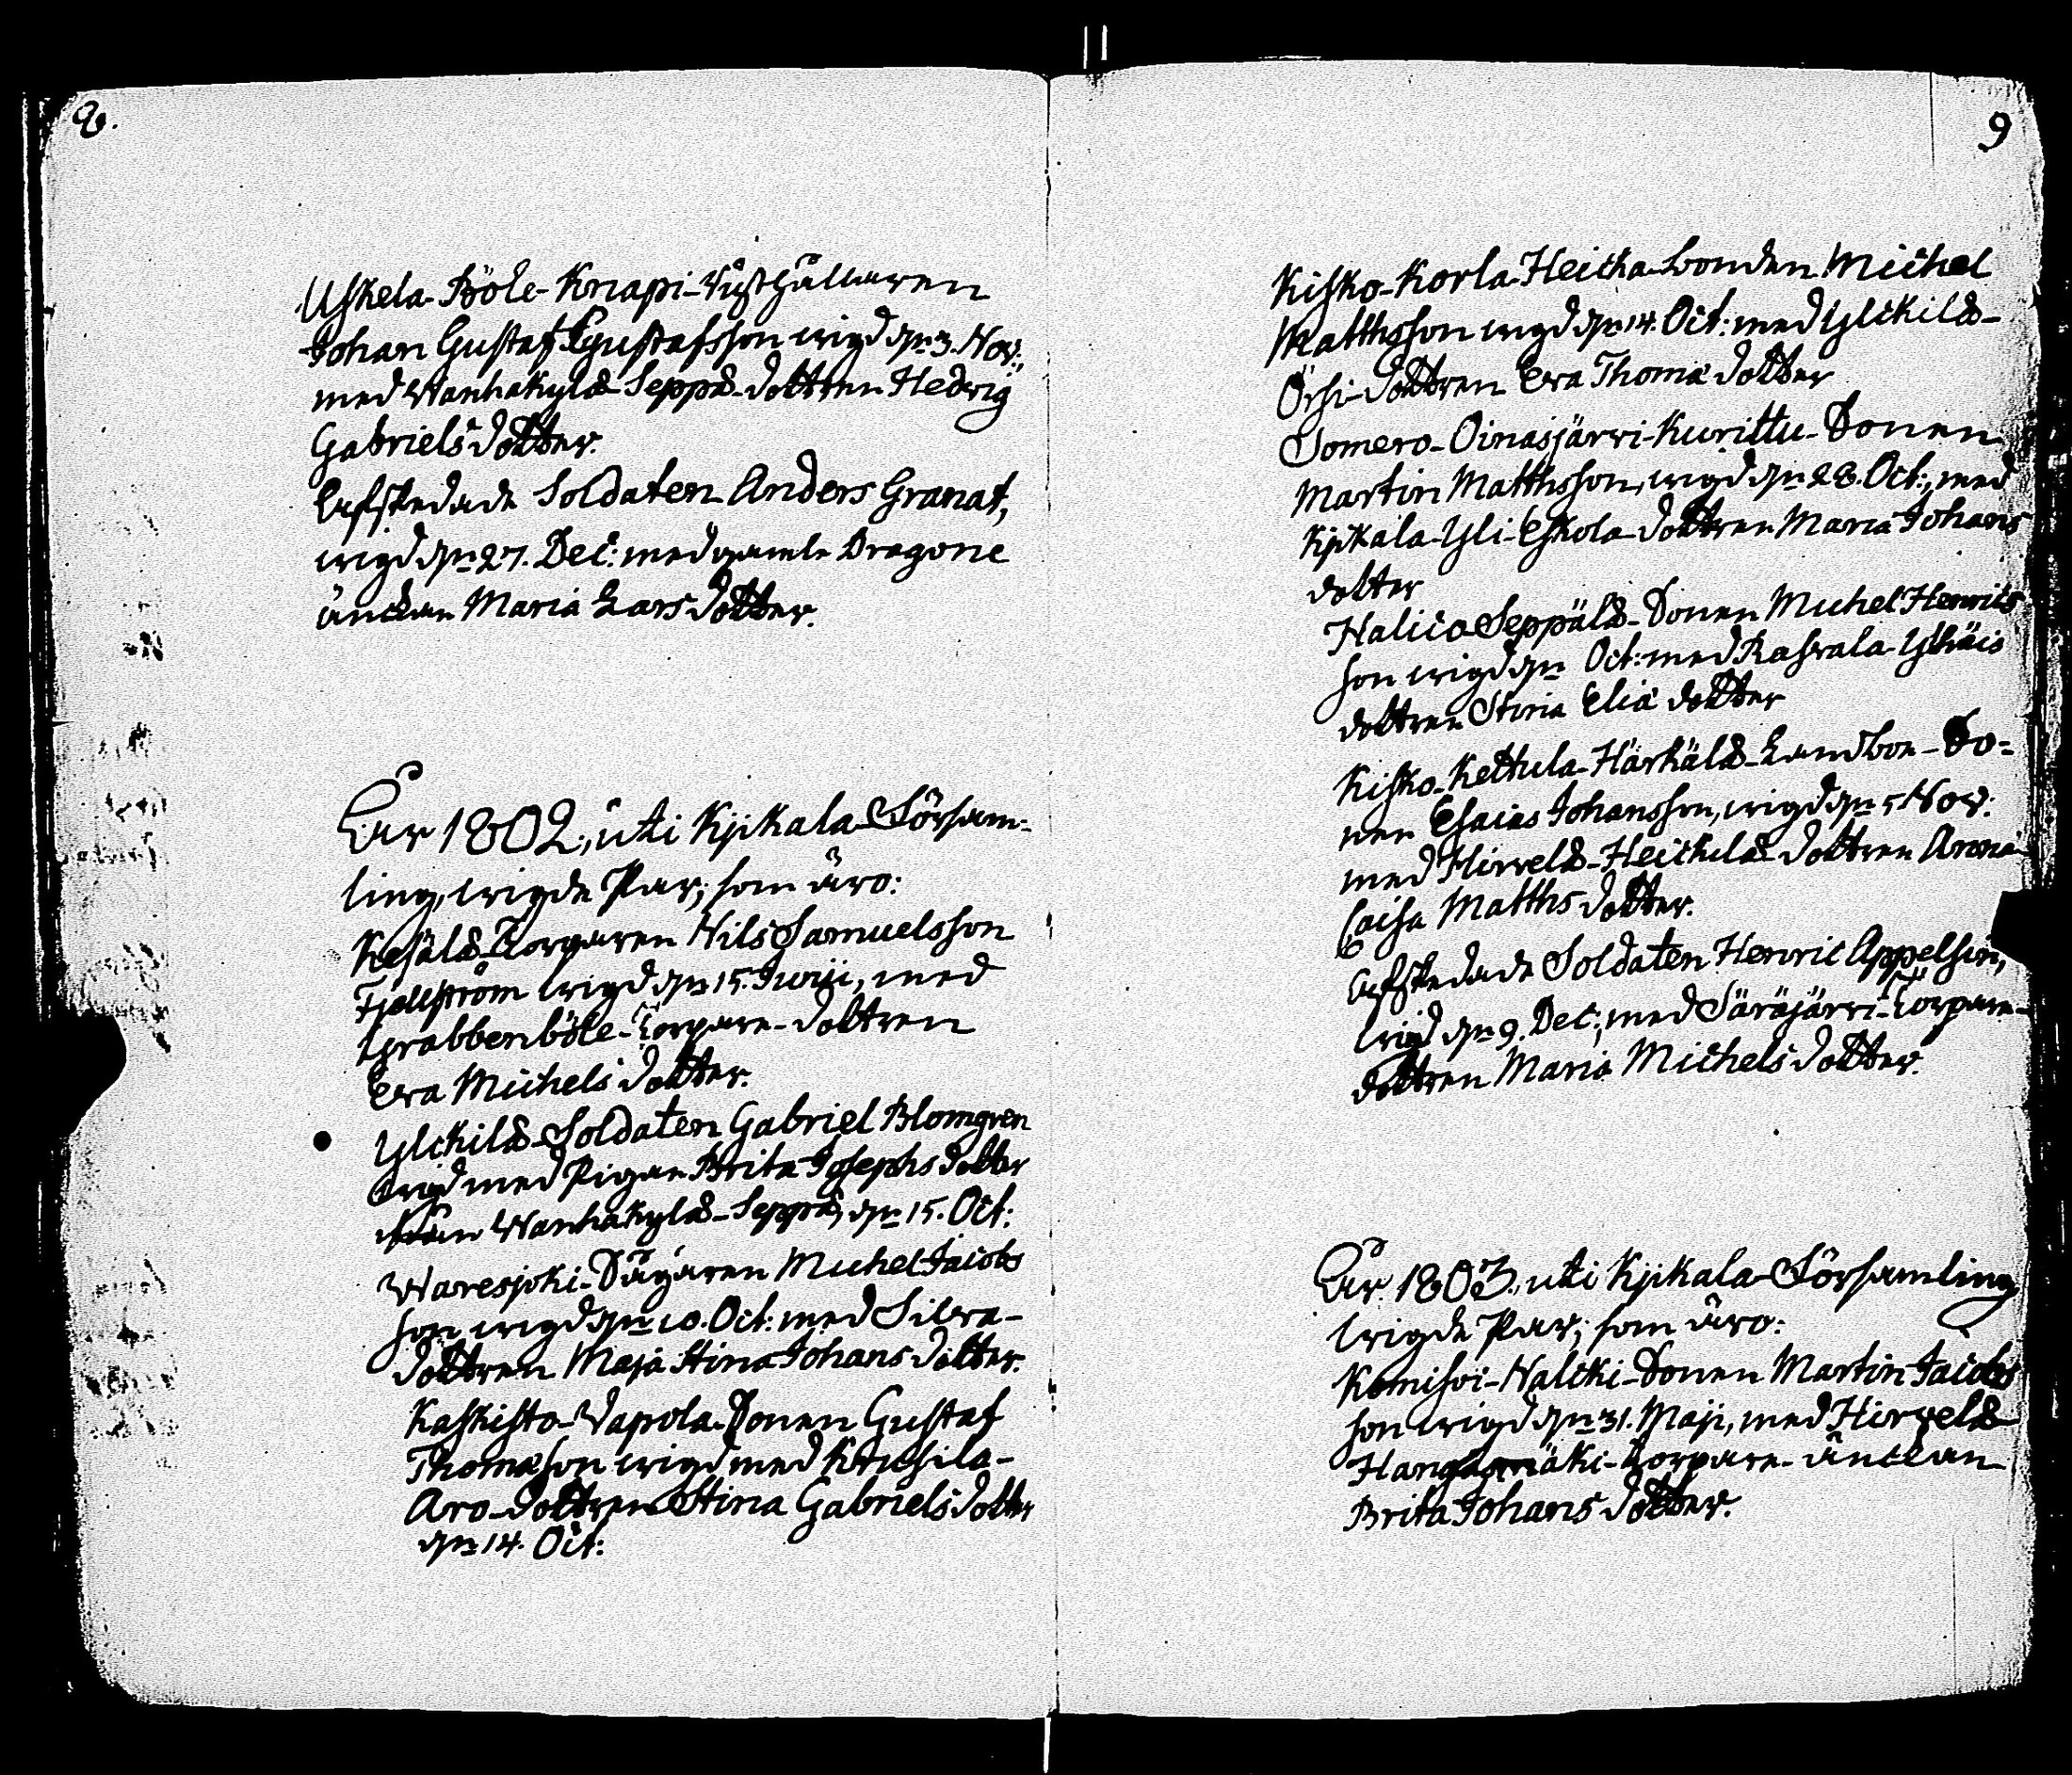 8.
Uskela-Böle-Knapi-Rusthållaren
Johan Gustaf Gustafsson wigd dn 3. Nov:
med Wanhakylä-Seppä-dottren Hedvig
Gabriels dotter.
Afskedade Soldaten Anders Granat,
wigd dn 27. Dec: med gamle Dragone
änckan Maria Lars dotter.
År 1802, uti Kjikala Försam-
ling, wigde Par; som äro:
Kesälä-Torparen Nils Samuelsson
Fjellström wigd dn 15. Junii, med
Grabbenböle-Torpare-dottren
Eva Michels dotter.
Ylckilä-Soldaten Gabriel Blomgren
wigd med Pigan Brita Josephs dotter
från Wanhakylä-Seppä, dn 15. Oct:
Waresjoki-Sågaren Michel Jacobs
son wigd dn 10. Oct: med Silva-
dottren Maja Stina Johans dotter.
Kaskisto-Vapola-Sonen Gustaf
Thomæson wigd med Krusila-
Aro-dottren Stina Gabriels dotter
dn 14. Oct:
9
Kisko-Korla-Heicka-bonden Michel
Matthsson wigd dn 14. Oct: med Ylckilä-
Örsi-dottren Eva Thomæ dotter
Somero-Oinasjärvi-Kurittu-Sonen
Martin Matthsson, wigd dn 28. Oct:, med
Kjikala-Yli-Eskola-dottren Maria Johans
dotter
Halico-Seppälä-Sonen Michel Henrics
son wigd dn Oct: med Rasvala-
dottren Stina Eliæ dotter
Kisko-Kettula-Härkälä-Landbon-So-
nen Esaias Johansson, wigd dn 5 Nov:
med Hirvelä-Heickilä-dottren Anna
Caisa Matths dotter.
Afskedade Soldaten Henric Appelson,
wigd dn 9. Dec:, med Säräjärvi-Torpare-
dottren Maria Michels dotter.
År 1803, uti Kjikala Församling
wigde Par; som äro:
Komisoi-Nalcki-Sonen Martin Jacobs
son wigd dn 31. Maji, med Hirvelä
Hangasmäki-Torpare-änckan
Brita Johans dotter.